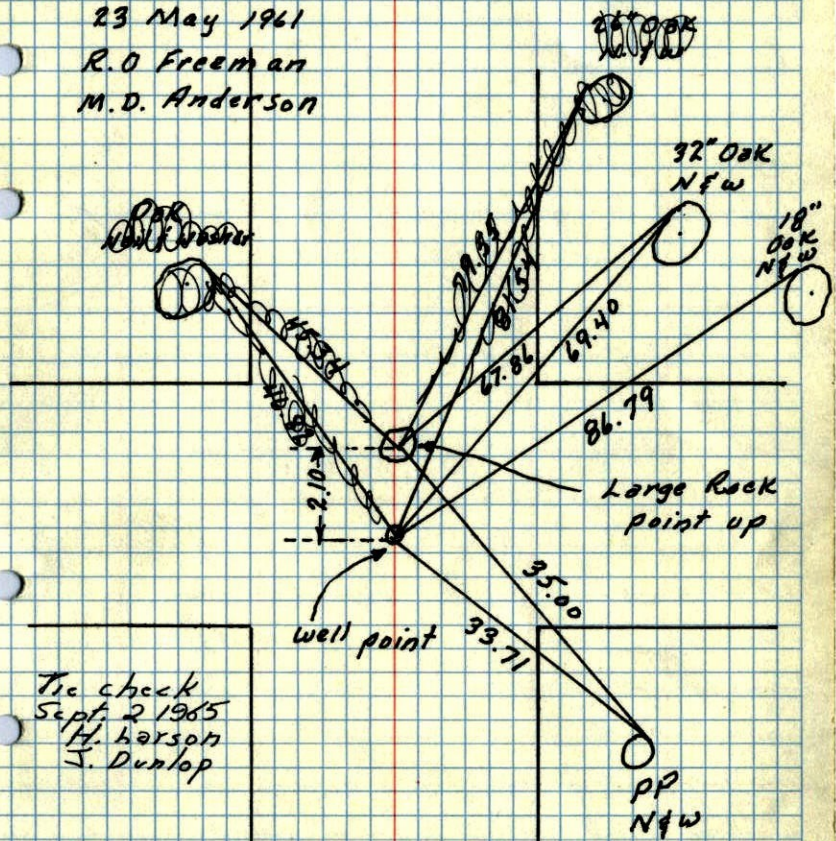 23 May 1961
R.O Freeman
M.D. Anderson
26" Oak
N & W
32" Oak
N & W
18"
Oak
N & W
Oak
Nail & Washer
45.34
67.86
69.40
86.79
2.10
Large Rock
point up
well point
35.00
33.71
Tie check
Sept. 2 1965
H. Larson
J. Dunlop
PP
N & W